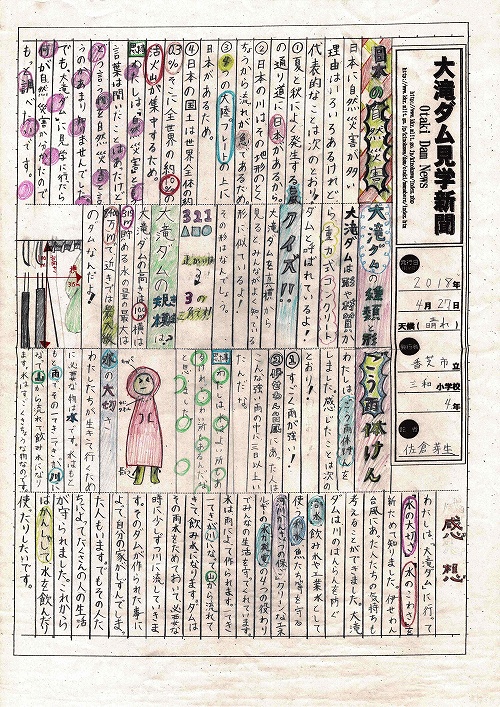 大滝ダム見学新聞
Otaki Dam News
発行日
2018年
4月27日
天候(晴れ)
香芝市立
三和小学校
4年
佐倉芽生
日本の自然災害
日本に自然災害が多い
理由はいろいろあるけれど
代表的なことは次のとおり!
①夏と秋によく発生する
の通り道に日本があるから。
②日本の川はその地形のとく
ちょうから流れが急であるため。
③4つの大陸プレートの上に
日本があるため。
④日本の国土は世界全体の約
0.3%。そこに全世界の約10%の
活火山が集中するため。
わたしは、自然災害と言う
言葉は聞いたことはあったけど
どう言う物を自然災害と言
うのかあまり知りませんでした。
でも、大滝ダムに見学に行たら
何が自然災害か分かたので
もっと調べたいです。
大滝ダムの種類と形
大滝ダムは形や材質か
ら重力式コンクリート
ダムと呼ばれているよ!
クイズ!!
大滝ダムを真横から
見るとみんながよく知ている
形に似ているよ!
その形はなんでしょう。
1
2
3
3の
三角形
大滝ダムの規模は?
大滝ダムの高さは100m横は
315m貯める水の量の最大は
8400万m³で近きでは最大級
のダムなんだよ!
ごう雨体けん
わたしは、ごう雨体けんを
しました。感じたことは次の
とおり!
①すごく雨が強い!
②伊勢湾台風にあた人は
こんな強い雨の中に三日以上い
たんだな。
と思いました。
水の大切さ
わたしたちが生きて行くため
に必要な物は水です。水はもと
もと雨、そのできてきたが川に
なて山から流れて飲み水になり
ます。水はすごくきちょうな物なのです。
感想
わたしは、大滝ダムに行って
水の大切さ、水のこわさを
新ためて知りました。伊せわん
台風にあた人たちの気持ちも
考えることができました。大滝
ダムは川のはんらんを防ぐ
治水、飲み水や工業水として
使う利水、魚たち等を守る
河川かんきょうの保全、クリーンなエネ
ルギーの水力発電の4つの役わり
でみんなの生活を守てくれています。
水は雨によて作られます。でき
た水が川になて山から流れて
きて飲み水になります。ダムは
その雨水をためておいて、必要な
時に少しずつ川に流していきま
す。そのダムが作られた事に
よて、自分の家がしずんでしま
た人もいます。でもその人た
ちによってたくさんの人の生活
が守られました。これから
はかんしゃして水を飲んだり
使ったりしたいです。